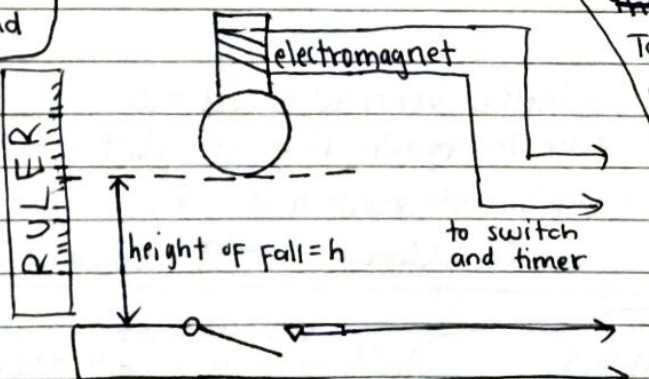 nd
To
electromagnet
RULER
height of Fall = h
to switch
and timer